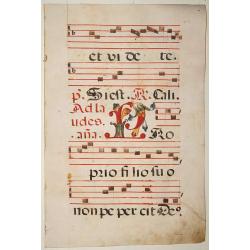 et vi de te.
p. Si est. R. Cali
Ad la
udes.
aña. P RO
prio fi lio su o
non pe per cit De9.